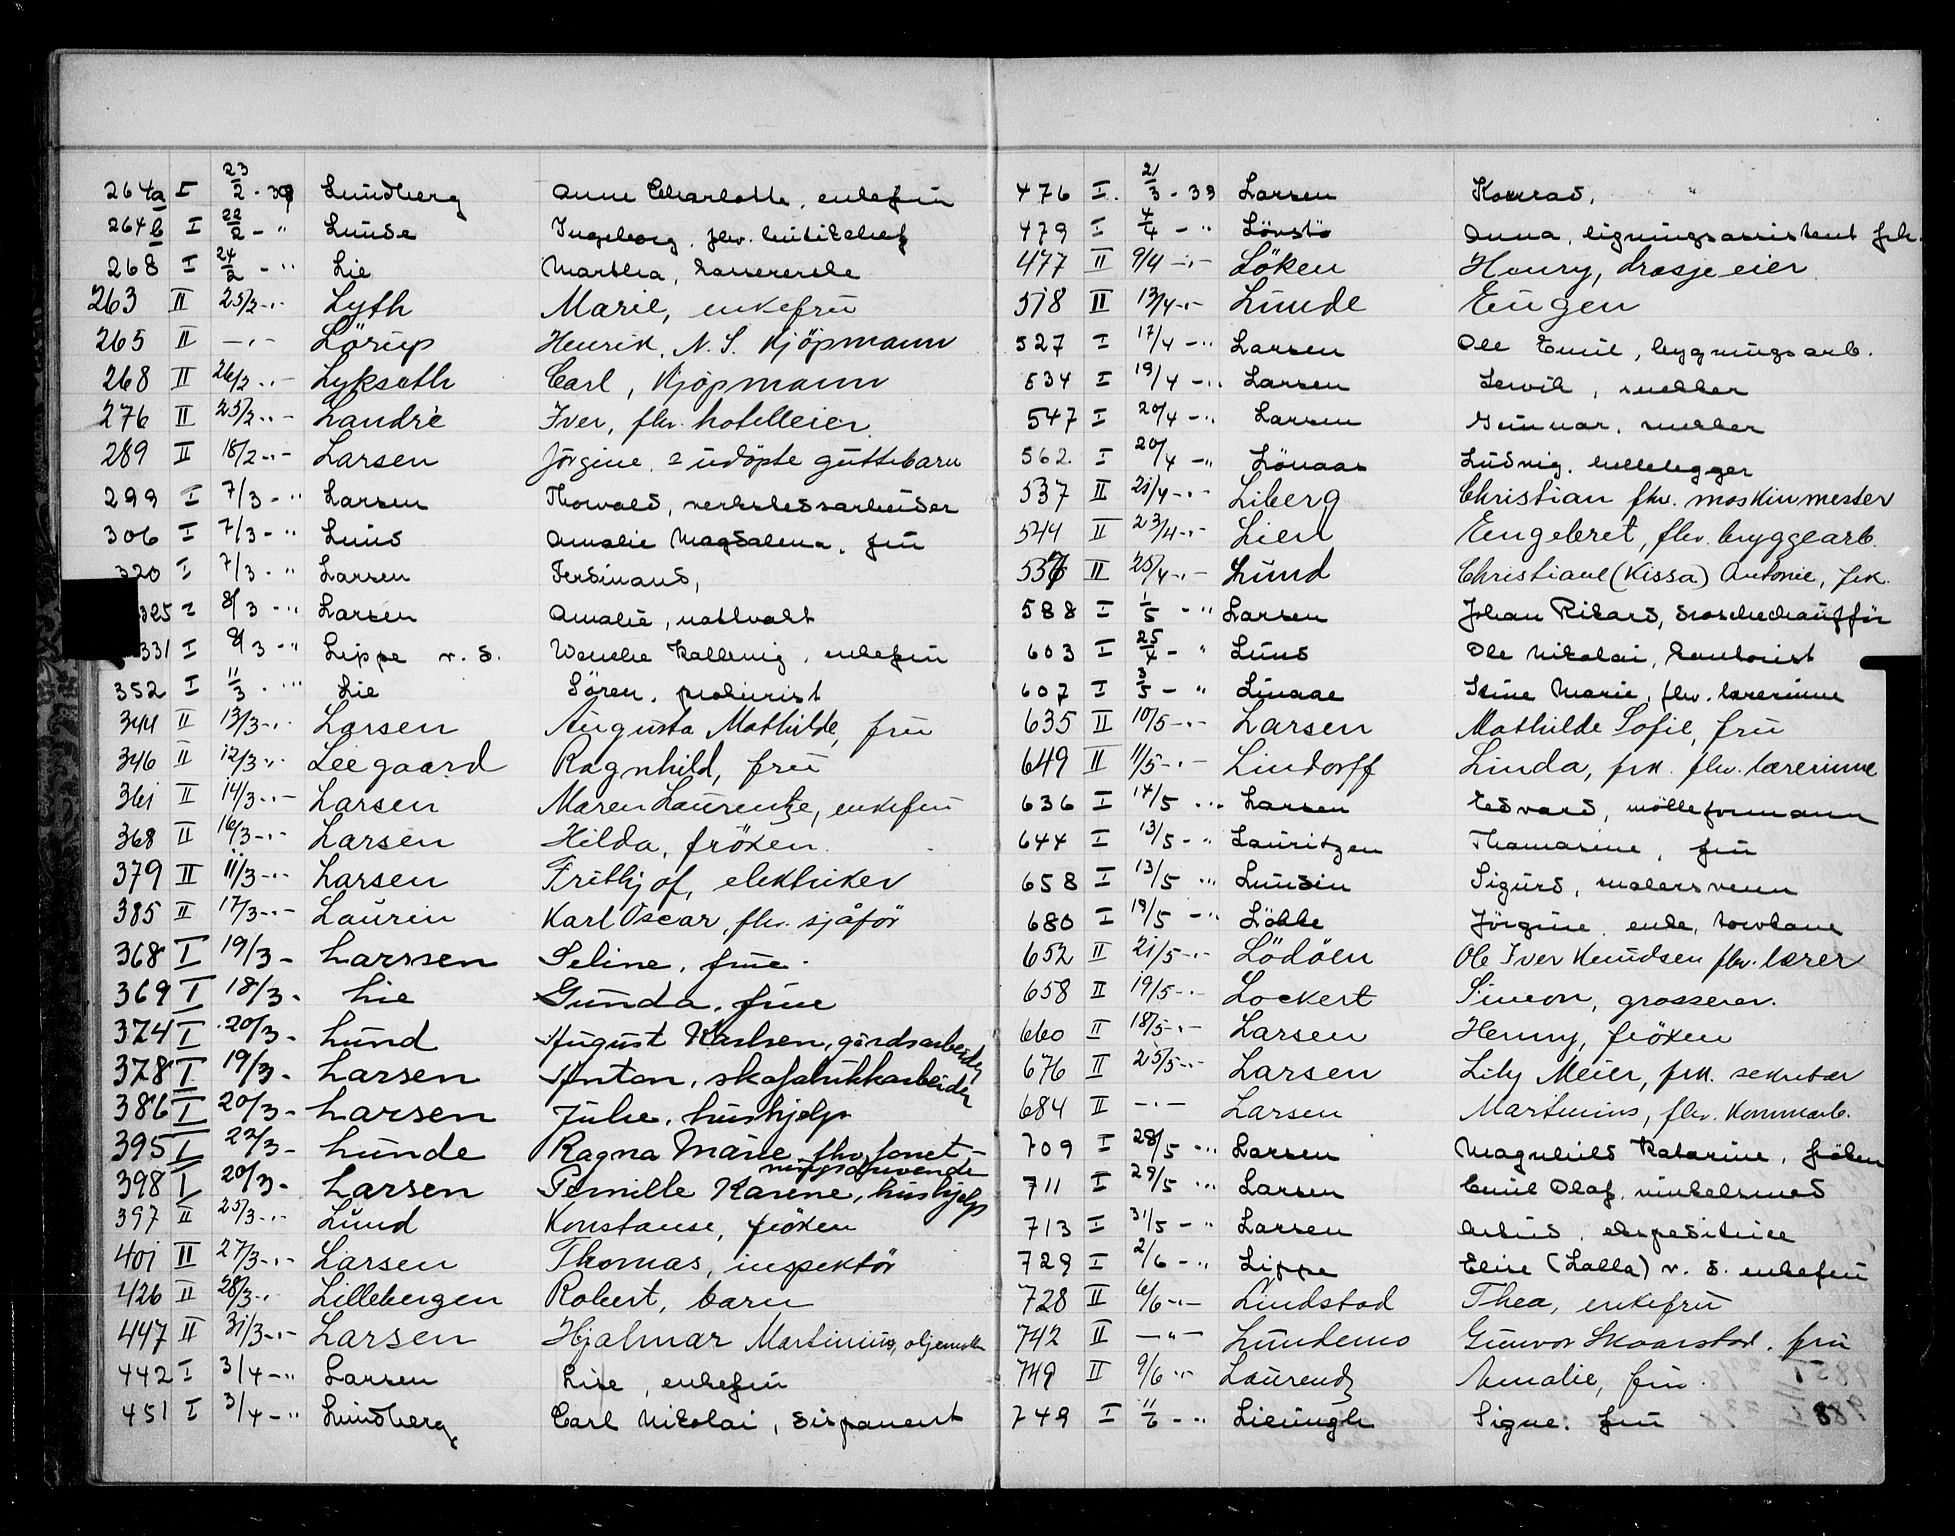 264a I 23/2 - 39 Lundberg Anne Charlotte, enkefru
264b I 22/2 - " Lunde Ingeborg, fhv. butikchef
268 I 24/2 - " Lie Martha, kassererske
263 II 25/2 - " - Lyth Marie, enkefru
265 II - " - Lörup Henrik, N. S. Kjöpmann
268 II 26/2 - " - Lykseth Carl, Kjöpmann
276 II 25/2 - " - Landré Iver, fhv. hotelleier
289 II 18/2 - " - Larsen Jörgine, 2 udöpte guttebarn
299 I 7/3 - " Larsen Thorvald, verkstedsarbeider
306 I 7/3 - " Lund Amalie Magdalena, fru
320 I 7/3 - " Larsen Ferdinand,
325 I 8/3 - " Larsen Amalie, nattvakt
331 I 9/3 - " Lippe v. d. Wenche Kallevig, enkefru
352 I 11/3 - " Lie Sören, prokurist
344 II 13/3 - " Larsen Augusta Mathilde, fru
346 II 12/3 " Leegaard Ragnhild, fru
361 II 14/3 - " - Larsen Maren Laurentze, enkefru
368 II 16/3 - " - Larsen Hilda, fröken
379 II 11/3 - " - Larsen Frithjof, elektriker
385 II 17/3 - " - Laurin Karl Oscar, fhv. sjåför
368 I 19/3 - Larssen Seline, frue.
369 I 18/3 - Lie Gunda, frue
374 I 20/3 - Lund August Karlsen, gårdsarbeider
378 I 19/3 - Larsen Anton, skofabrikkarbeider
386 I 20/3 - Larsen Julie, hushjelp
395 I 22/3 - Lunde Ragna Marie, fhv. forret-
ningsdrivende
398 I 20/3 - Larsen Pernille Karene, hushjelp
397 II 25/3 - " - Lund Konstanse, fröken
401 II 27/3 - " - Larsen Thomas, inspektör
426 II 28/3 - " Lillebergen Robert, barn
447 II 31/3 - " - Larsen Hjalmar Martinius,
442 I 3/4 - " Larsen Lise, enkefru
451 I 3/4 - " Lundberg Carl Nikolai, disponent
476 I. 21/3 - 39 Larsen Konrad,
479 I 4/4 - " Lövstö Anna, ligningsassistent frk.
477 II 9/4 - " - Löken Henry, drosjeeier
518 II 13/4 - " - Lunde Eugen
527 I 17/4 - " Larsen Ole Emil, bygningsarb.
534 I 19/4 - " Larsen Lervik, snekker
547 I 20/4 - " Larsen Gunnar, snekker
562 I 20/4 - " Lönaas Ludvig, hellelegger
537 II 21/4 - " - Liberg Christian fhv. maskinmester
544 II 23/4 - " - Lien Engebret, fhv. bryggearb.
556 II 25/4 - " - Lund Christiane (Kissa) Antonie, frk.
588 I 1/5 - " Larsen Johan Rikard, droschechauffür
603 I 25/4 - " Lund Ole Nikolai, kontorist
607 I 3/5 - " Linaae Stine Marie, fhv. lærerinne
635 II 10/5 - " - Larsen Mathilde Sofie, fru
649 II 11/5 - " - Lindorff Linda, frk. fhv. lærerinne
636 I 14/5 " Larsen Edvard, mölleformann
644 I 13/5 - " Lauritzen Thomasine, fru
658 I 13/5 " Lundin Sigurd, malersvenn
680 I 19/5 - " Lökke Jörgine, enke, torvkone
652 II 21/5 - " - Lödöen Ole Iver Knudsen fhv. lærer
658 II 19/5 - " - Lockert Simeon, grosserer.
660 II 18/5 - " - Larsen Henny, fröken
676 II 25/5 - " - Larsen Lily Meier, frk. sekretær
684 II - " - Larsen Martinius, fhv. Kommarb.
709 I 28/5 " Larsen Magnhild Katarine, fröken
711 I 29/5 " Larsen Emil Olaf, vinkelsmed
713 I 31/5 - " Larsen Astrid, ekspeditrice
729 I 2/6 - " Lippe Elise (Lalla) v. d. enkefru
728 II 6/6 - " - Lindstad Thea, enkefru
742 II - " - Lundemo Gunvor Skaarstad, fru
749 II 9/6 " - Laurendz Amalie, fru.
749 I 11/6 - " Lieungh Signe, fru